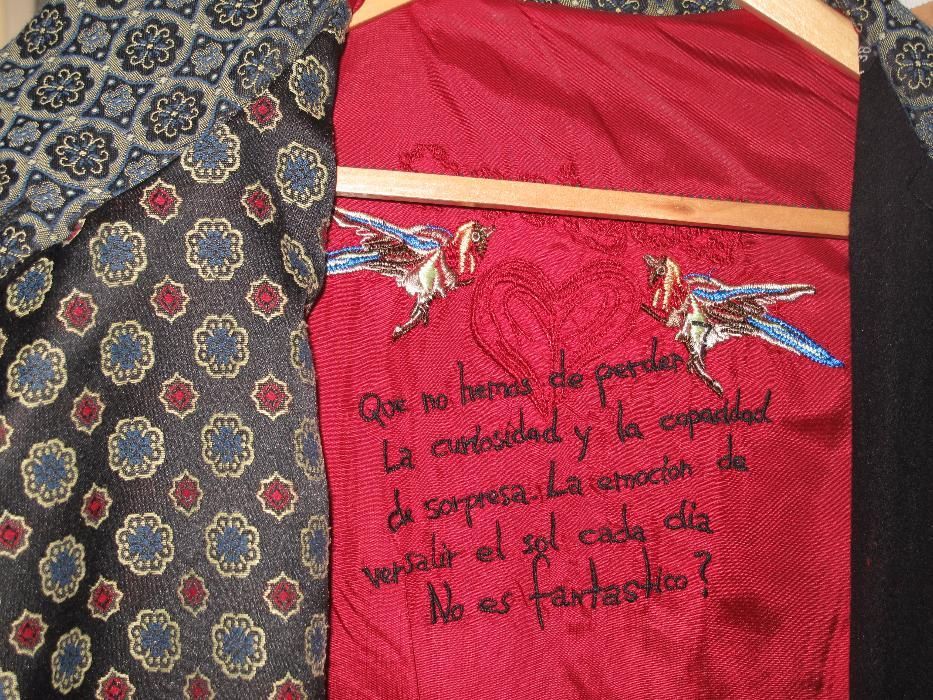 Que no hemos de perder
La curiosidad y la capacidad
de sorpresa. La emoción de
versalir el sol cada día
No es fantastico?